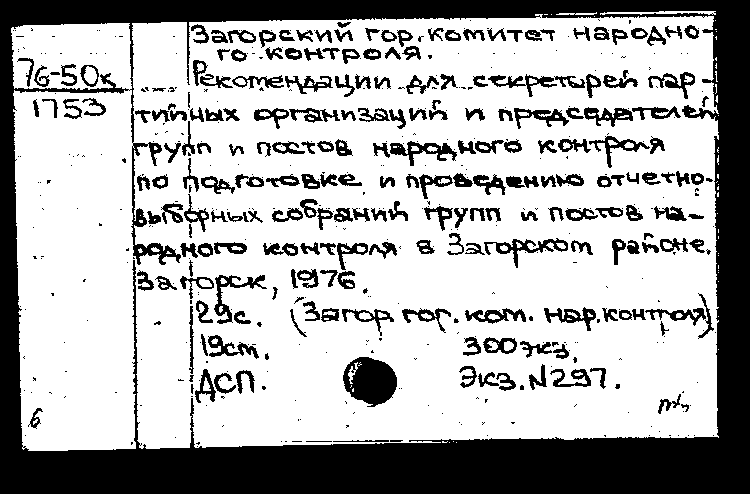 Загорский гор. комитет народно-
го контроля.
76-50к
Рекомендации для секретарей пар-
1753
тийных организаций и председателей
групп и постов народного контроля
по подготовке и проведению отчетно-
выборных собраний групп и постов на-
родного контроля в Загорском районе.
Загорск, 1976.
29с. (Загор. гор. ком. нар. контроля)
19см. 300экз.
ДСП. Экз. N297.
6